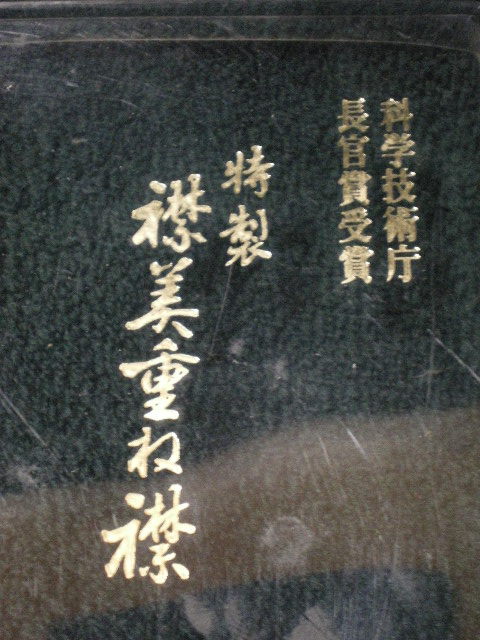 科学技術庁
長官賞受賞
特製
襟美重ね襟